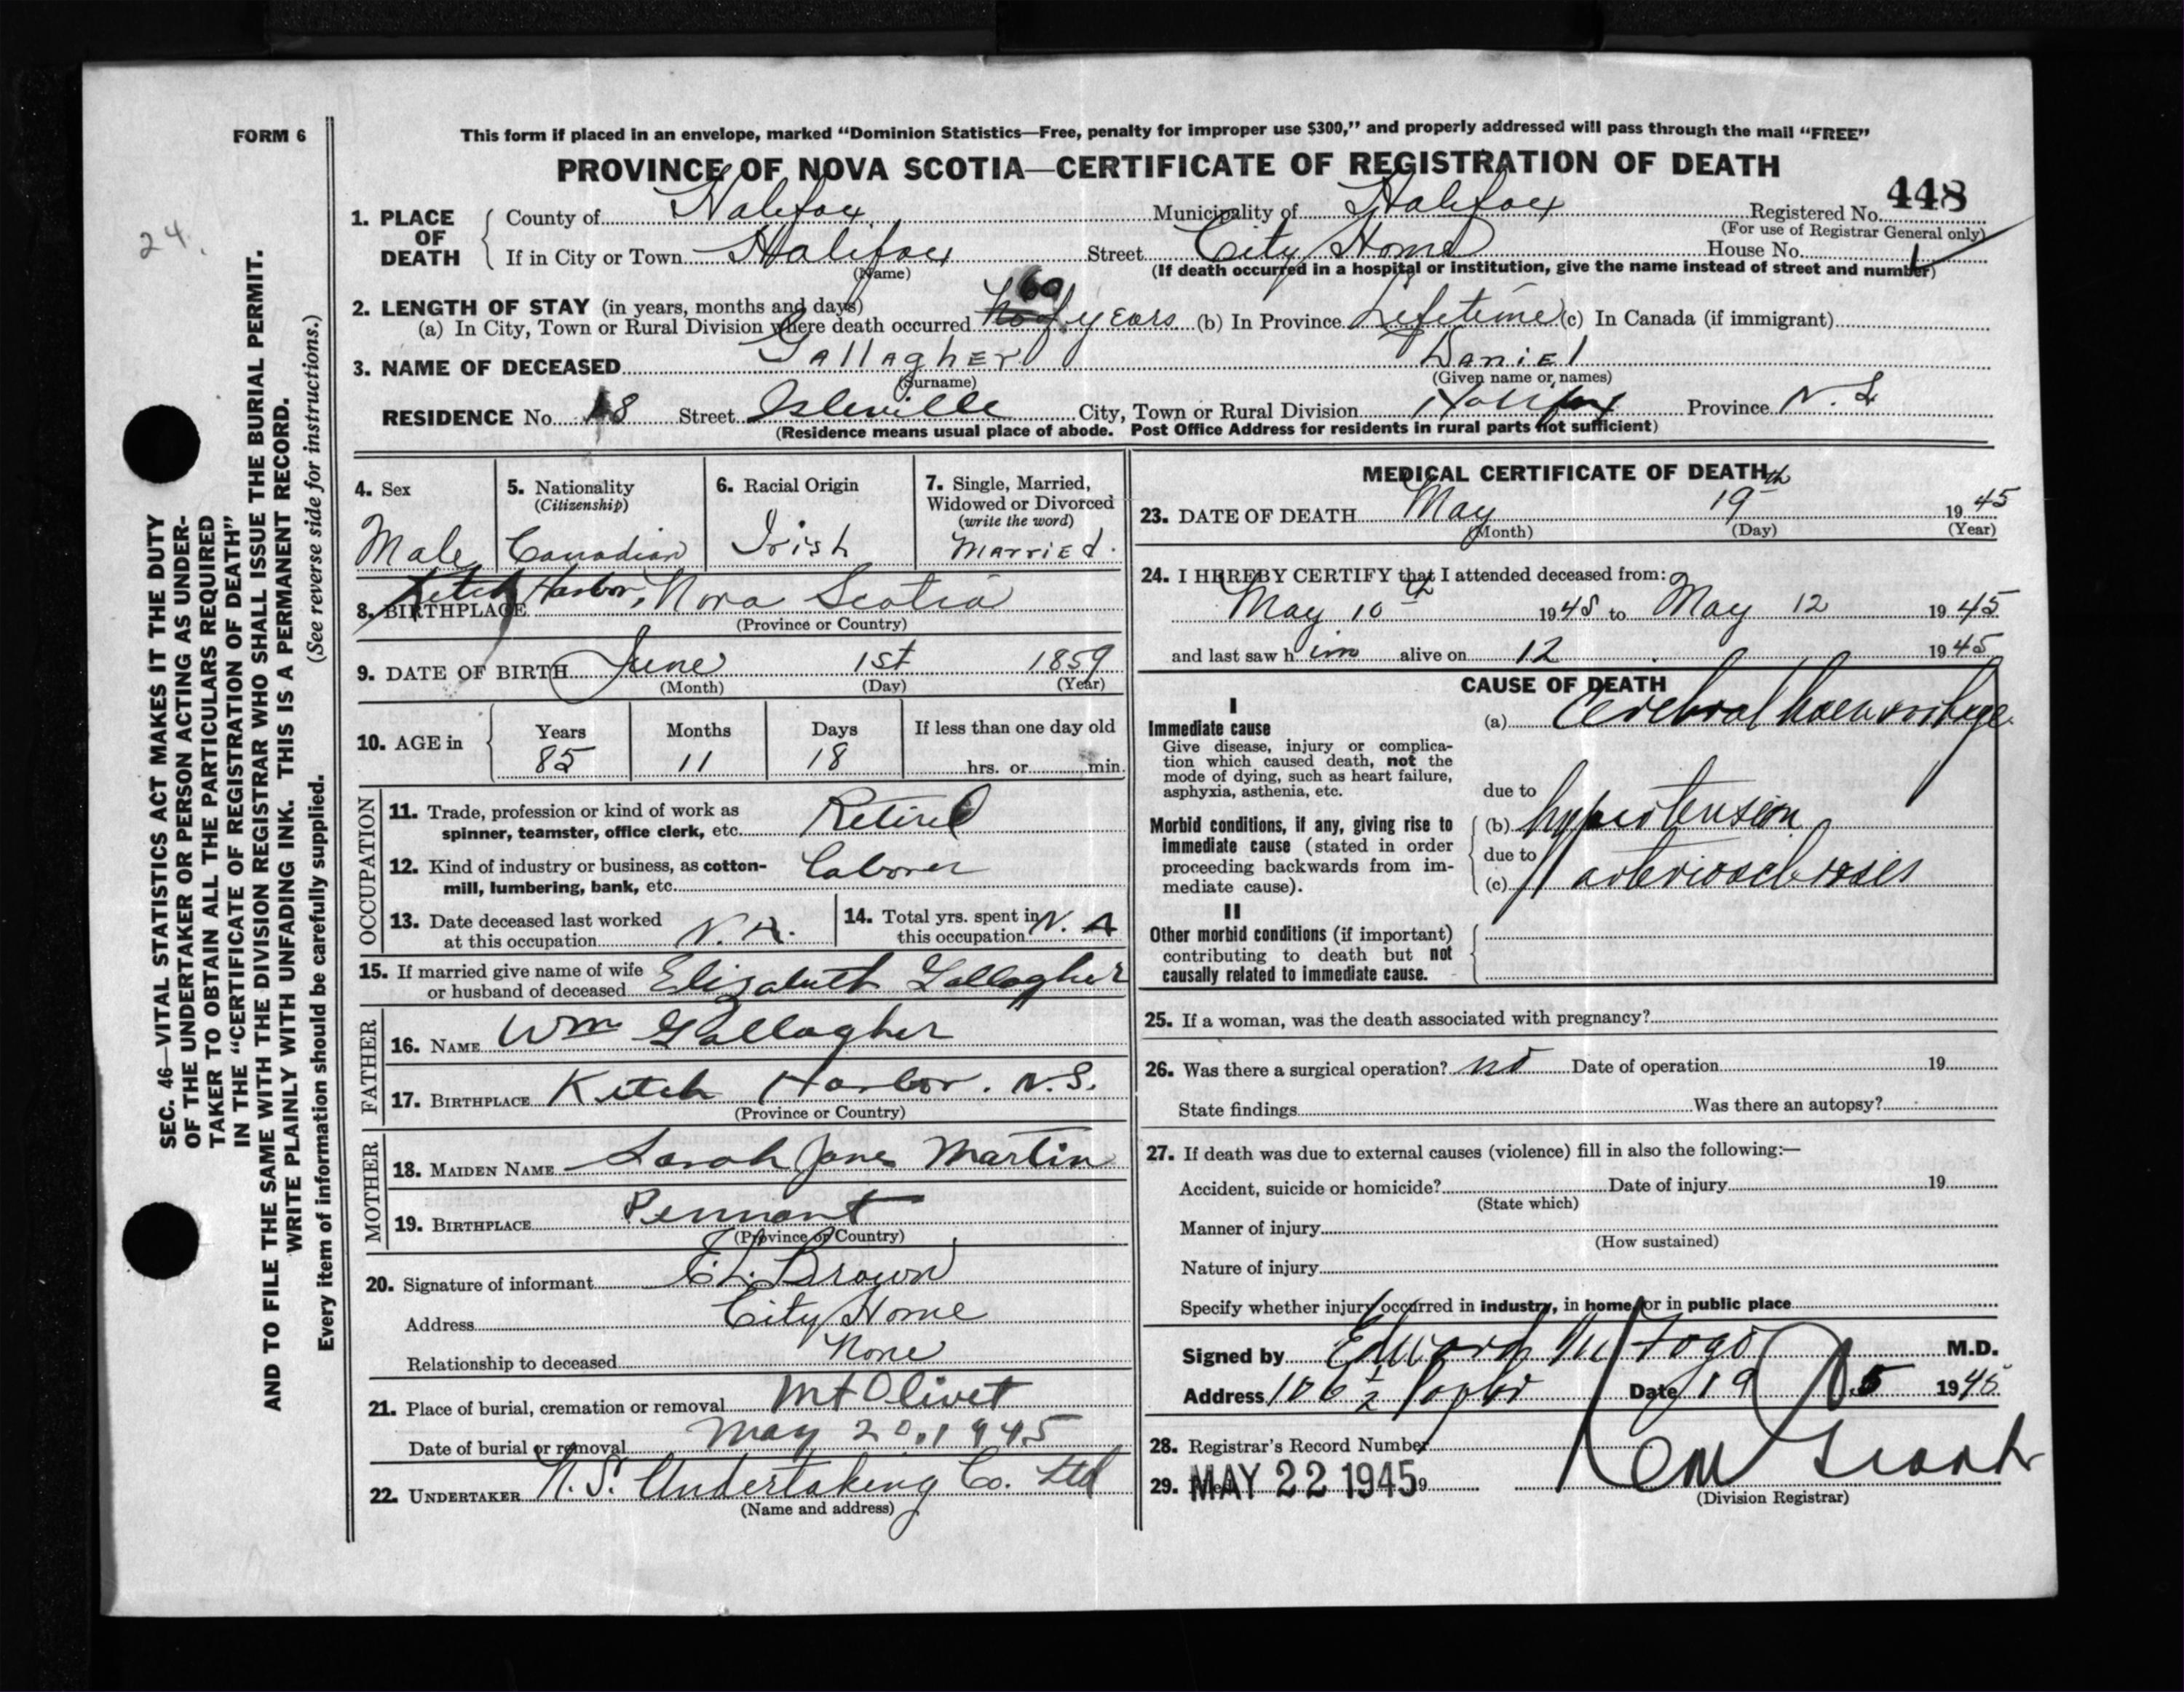 FORM 6
This form if placed in an envelope, marked “Dominion Statistics—Free, penalty for improper use $300,” and properly addressed will pass through the mail “FREE”
PROVINCE OF NOVA SCOTIA—CERTIFICATE OF REGISTRATION OF DEATH
448
24.
1. PLACE OF DEATH County of Halifax Municipality of Halifax Registered No.
(For use of Registrar General only)
If in City or Town Halifax Street City Home House No.
(Name) (If death occurred in a hospital or institution, give the name instead of street and number)
2. LENGTH OF STAY (in years, months and days)
(a) In City, Town or Rural Division where death occurred 60 years (b) In Province Lifetime (c) In Canada (if immigrant)
3. NAME OF DECEASED Gallagher Daniel
(Surname) (Given name or names)
RESIDENCE No. 18 Street Isleville City, Town or Rural Division Halifax Province N. S.
(Residence means usual place of abode. Post Office Address for residents in rural parts not sufficient)
4. Sex
Male
5. Nationality
(Citizenship)
Canadian
6. Racial Origin
Irish
7. Single, Married,
Widowed or Divorced
(write the word)
Married.
8. BIRTHPLACE Ketch Harbor, Nova Scotia
(Province or Country)
9. DATE OF BIRTH June 1st 1859
(Month) (Day) (Year)
10. AGE in Years Months Days If less than one day old
85 11 18 hrs. or min.
OCCUPATION
11. Trade, profession or kind of work as
spinner, teamster, office clerk, etc. Retired
12. Kind of industry or business, as cotton-
mill, lumbering, bank, etc. Laborer
13. Date deceased last worked
at this occupation N. A.
14. Total yrs. spent in
this occupation N. A
15. If married give name of wife
or husband of deceased Elizabeth Gallagher
FATHER
16. NAME Wm Gallagher
17. BIRTHPLACE Ketch Harbor. N.S.
(Province or Country)
MOTHER
18. MAIDEN NAME Sarah Jane Martin
19. BIRTHPLACE Pennant
(Province or Country)
20. Signature of informant E.L. Brown
Address City Home
Relationship to deceased None
21. Place of burial, cremation or removal Mt Olivet
Date of burial or removal May 20, 1945
22. UNDERTAKER N.S. Undertaking Co. Ltd
(Name and address)
MEDICAL CERTIFICATE OF DEATH
23. DATE OF DEATH May 19th 1945
(Month) (Day) (Year)
24. I HEREBY CERTIFY that I attended deceased from:
May 10th 1945 to May 12 1945
and last saw him alive on 12 1945
CAUSE OF DEATH
I
Immediate cause
Give disease, injury or complica-
tion which caused death, not the
mode of dying, such as heart failure,
asphyxia, asthenia, etc.
(a) Cerebral haemorrhage
due to
Morbid conditions, if any, giving rise to
immediate cause (stated in order
proceeding backwards from im-
mediate cause).
(b) hypertension
due to
(c) arteriosclerosis
II
Other morbid conditions (if important)
contributing to death but not
causally related to immediate cause.
25. If a woman, was the death associated with pregnancy?
26. Was there a surgical operation? no Date of operation 19
State findings Was there an autopsy?
27. If death was due to external causes (violence) fill in also the following:—
Accident, suicide or homicide? Date of injury 19
(State which)
Manner of injury
(How sustained)
Nature of injury
Specify whether injury occurred in industry, in home, or in public place
Signed by Edward M. Fogo M.D.
Address 106½ Date 19 5 1945
28. Registrar's Record Number
29. MAY 22 1945 9
(Division Registrar)
SEC. 46—VITAL STATISTICS ACT MAKES IT THE DUTY
OF THE UNDERTAKER OR PERSON ACTING AS UNDER-
TAKER TO OBTAIN ALL THE PARTICULARS REQUIRED
IN THE “CERTIFICATE OF REGISTRATION OF DEATH”
AND TO FILE THE SAME WITH THE DIVISION REGISTRAR WHO SHALL ISSUE THE BURIAL PERMIT.
WRITE PLAINLY WITH UNFADING INK. THIS IS A PERMANENT RECORD.
Every item of information should be carefully supplied. (See reverse side for instructions.)